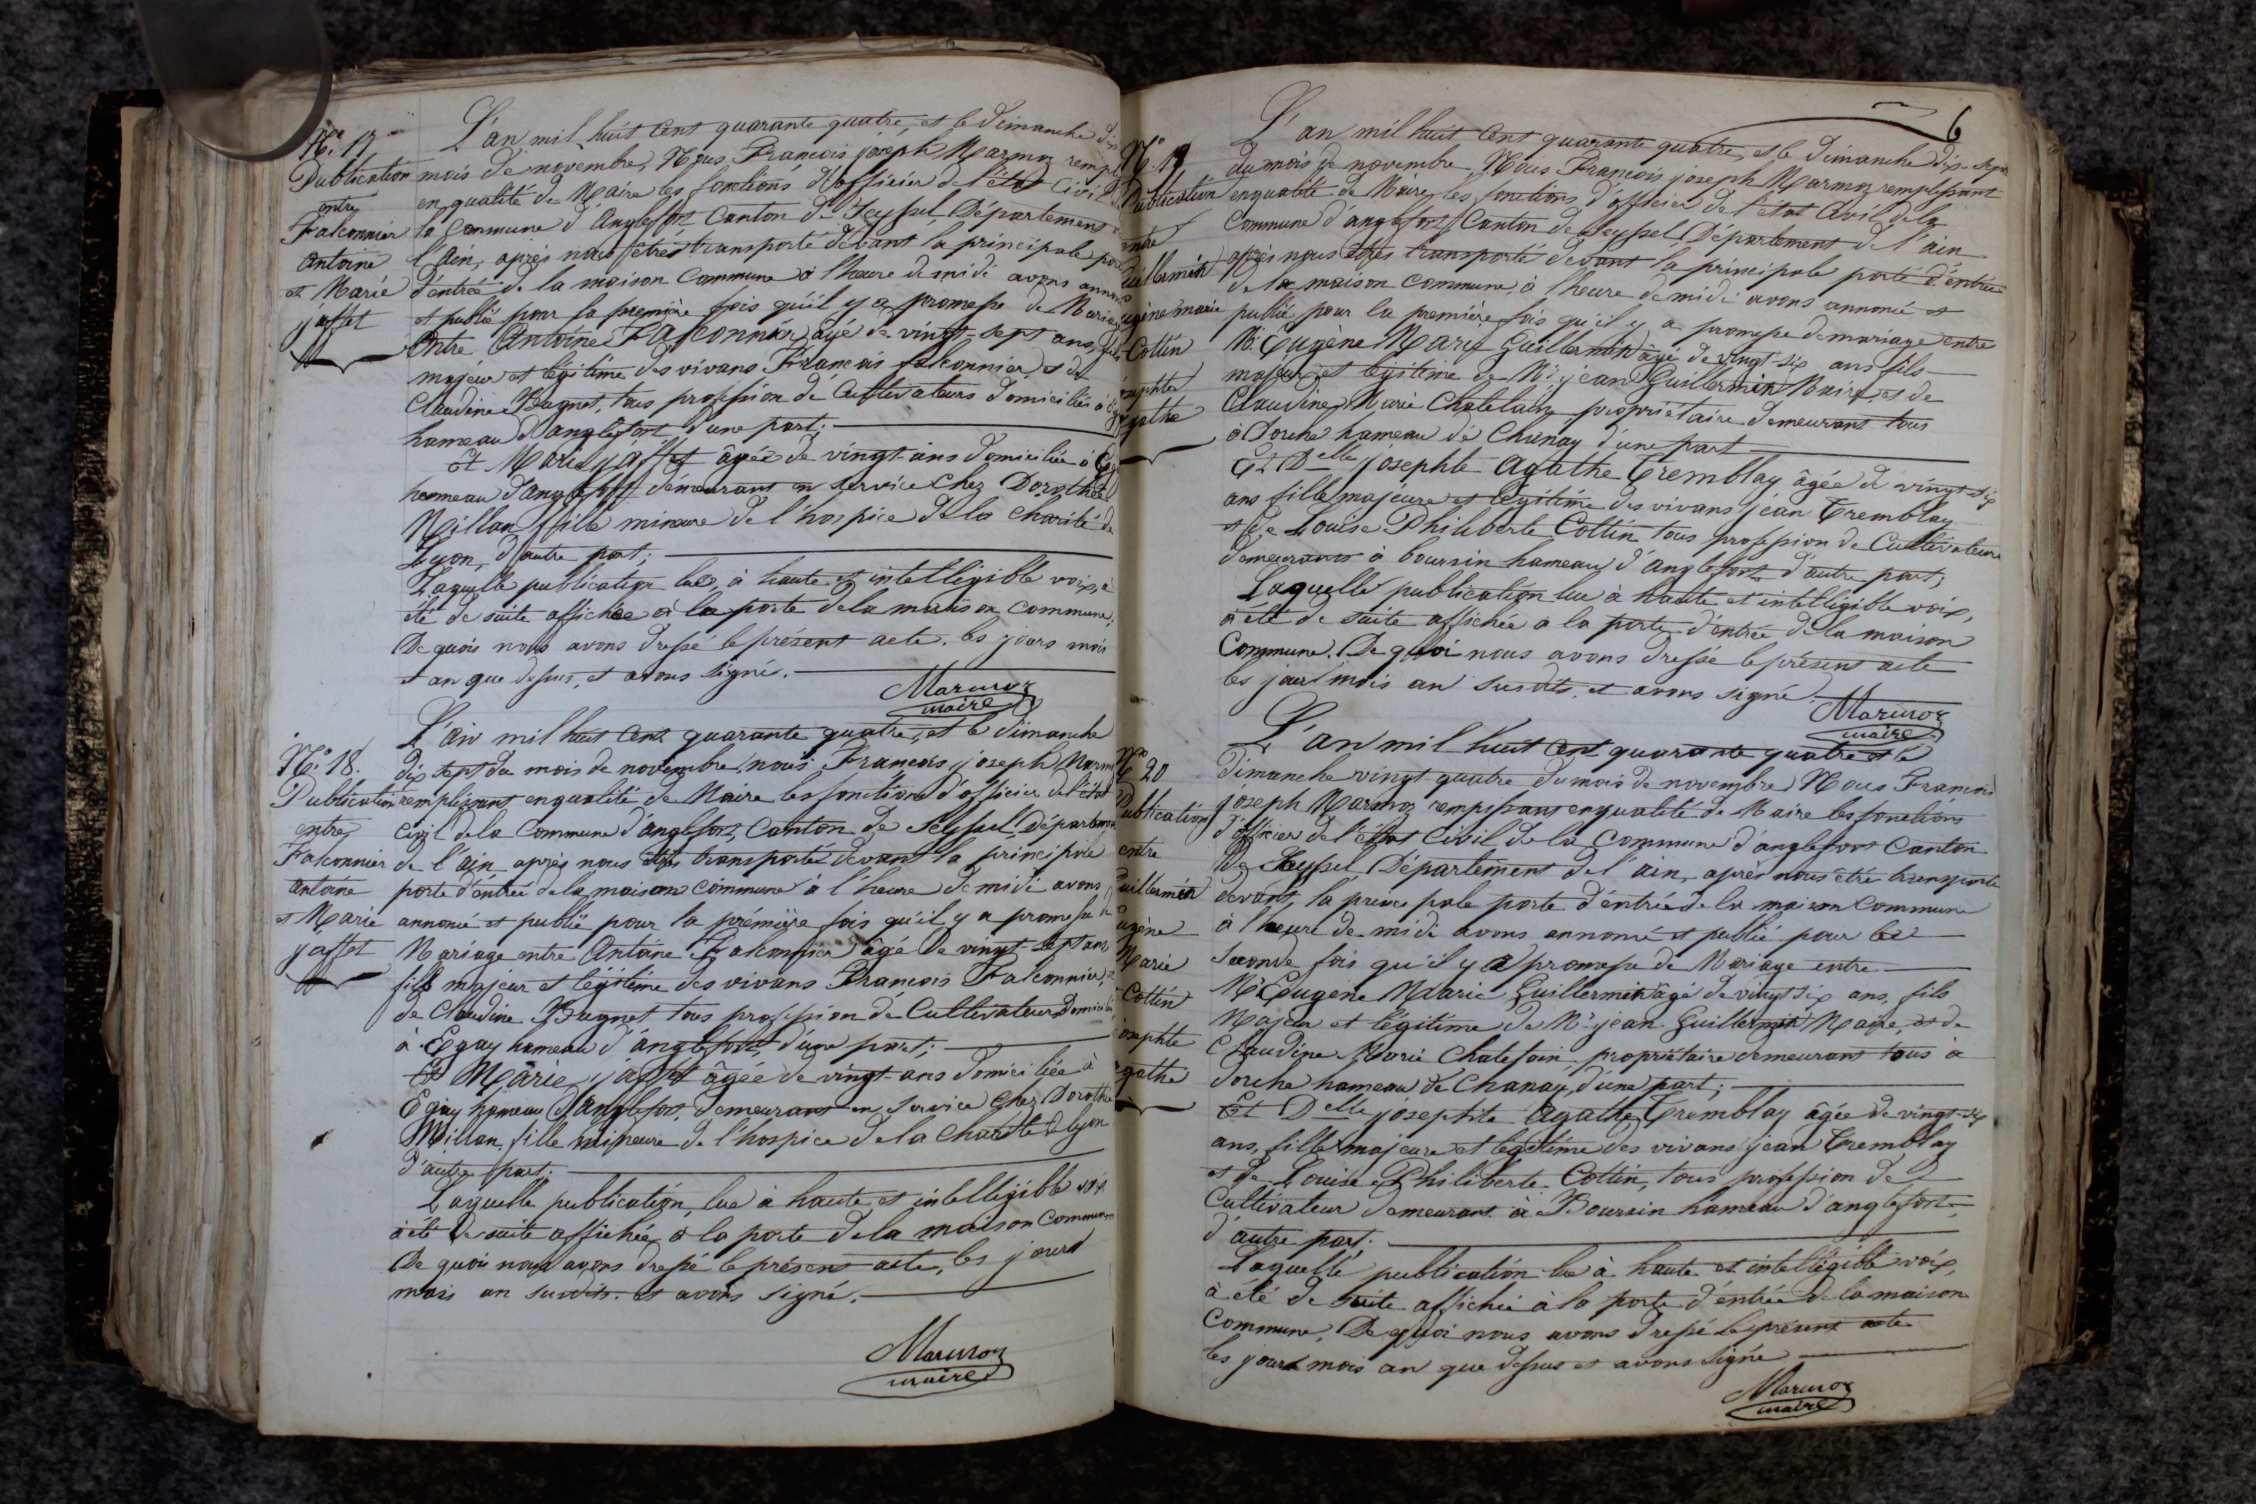 No. 17
Publication
entre
Falconnier
antoine
et Marie
jaffet
L'an mil huit cent quarante quatre, et le dimanche dix
mois de novembre, Nous, François joseph Marmoz rempl
en qualité de Maire les fonctions d'officier de l'état Civil de
la Commune d'Anglefort Canton de Seyssel Département de
l'ain, après nous être transporté devant la principale porte
d'entrée de la maison Commune à l'heure de midi avons annoncé
et publié pour la première fois qu'il y a promesse de Mariage
entre Antoine Falconnier, agé de vingt-sept ans, fils
majeur et légitime des vivans François falconnier, et de
Claudine Bugnet, tous profession de Cultivateurs domiciliés à
hameau d'anglefort d'une part;
Et Marie jaffet âgée de vingt-ans domiciliée à
hameau d'anglefort demeurant en service chez Dorothée
Millan, fille mineure de l'hospice de la charité de
Lyon, d'autre part;
Laquelle publication lue, à haute et intelligible voix, à
été de suite affichée à la porte de la maison commune;
De quoi nous avons dressé le présent acte. les jours mois
et an que dessus, et avons signé.
Marmoz
maire
No. 18.
Publication
entre
Falconnier
antoine
et Marie
jaffet
L'an mil huit cent quarante quatre, et le dimanche
dix sept du mois de novembre, nous François joseph Marmoz
remplissant en qualité de Maire les fonctions d'officier de l'état
civil de la Commune d'anglefort, Canton de Seyssel, Département
de l'ain, après nous être transporté devant la principale
porte d'entrée de la maison commune à l'heure de midi avons
annoncé et publié pour la première fois qu'il y a promesse de
Mariage entre Antoine Falconnier âgé de vingt-sept ans
fils majeur et légitime des vivans François Falconnier,
de Claudine Bugnet tous profession de Cultivateurs Domiciliés
à Egay hameau d'anglefort, d'une part;
Et Marie jaffet âgée de vingt-ans domiciliée à
Egay hameau d'anglefort, demeurant en service chez Dorothée
Millan, fille mineure de l'hospice de la Charité de lyon
d'autre part.
Laquelle publication, lue à haute et intelligible voix
à été de suite affichée à la porte de la maison Commune
De quoi nous avons dressé le présent acte, les jours
mois an susdits. et avons signé.
Marmoz
maire
6
No. 19
Publication
entre
Guillermin
Eugène marie
Cottin
josephte
agathe
L'an mil huit cent quarante quatre, et le dimanche dix-sept
du mois de novembre Nous François joseph Marmoz remplissant
en qualité de Maire, les fonctions d'officier de l'état Civil de la
Commune d'anglefort, Canton de Seyssel Département de l'ain
après nous être transporté devant la principale porte d'entrée
de la maison commune à l'heure de midi avons annoncé et
publié pour la première fois qu'il y a promesse de mariage entre
Mr. Eugène Marie Guillermin âgé de vingt-six ans fils
majeur et légitime de Mr. jean Guillermin Maire, et de
Claudine Marie Chatelain propriétaire demeurant tous
à Dorche hameau de Chanay d'une part
Et Delle josephte Agathe Tremblay âgée de vingt-six
ans fille majeure et légitime des vivans jean Tremblay
et de Louise Philiberte Cottin tous profession de Cultivateurs
demeurants à boursin hameau d'anglefort d'autre part;
Laquelle publication lue à haute et intelligible voix,
à été de suite affichée à la porte d'entrée de la maison
Commune. De quoi nous avons dressé le présent acte
les jours mois an susdits. et avons signé
Marmoz
maire
No 20
Publication
entre
Guillermin
Eugène
Marie
Cottin
josephte
agathe
L'an mil huit cent quarante quatre et le
dimanche vingt quatre du mois de novembre Nous François
joseph Marmoz remplissant en qualité de Maire les fonctions
d'officier de l'état Civil de la Commune d'anglefort Canton
de Seyssel Département de l'ain, après nous être transporté
devant, la principale porte d'entrée de la maison commune
à l'heure de midi avons annoncé et publié pour la
seconde fois qu'il y a promesse de Mariage entre
Mr. Eugene Marie Guillermin âgé de vingt-six ans, fils
Majeur et légitime de Mr. jean Guillermin Maire, et de
Claudine Marie Chatelain, propriétaire demeurant tous à
Dorche hameau de Chanay, d'une part;
Et Delle josephte Agathe Tremblay âgée de vingt-six
ans, fille majeure et légitime des vivans jean Tremblay
et de Louise Philiberte Cottin, tous profession de
Cultivateur demeurant à Boursin hameau d'anglefort
d'autre part.
Laquelle publication lue à haute et intelligible voix,
à été de suite affichée à la porte d'entrée de la maison
Commune, De quoi nous avons dressé le présent acte
les jours mois an que dessus et avons signé
Marmoz
maire